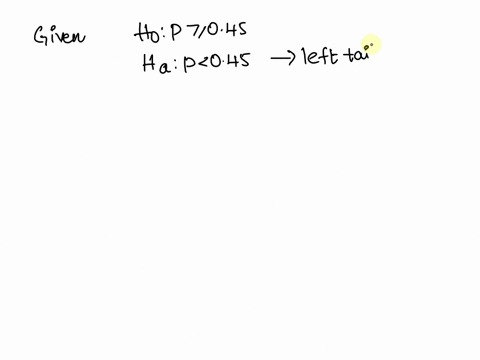 Given H₀: P ≥ 0.45
Hₐ: p < 0.45 → left tai